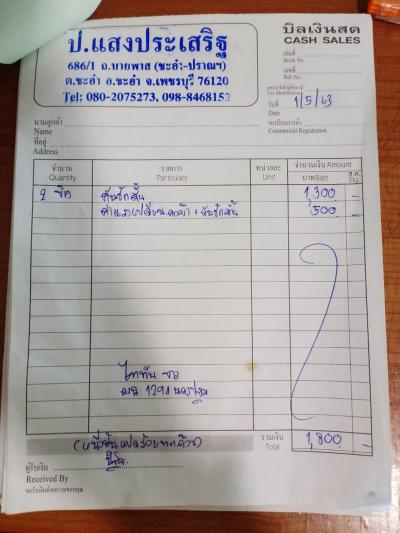 ป.แสงประเสริฐ
686/1 ถ.บายพาส (ชะอำ-ปราณฯ)
ต.ชะอำ อ.ชะอำ จ.เพชรบุรี 76120
Tel: 080-2075273, 098-8468152
บิลเงินสด
CASH SALES
เล่มที่
Book No.
เลขที่
Bill No.
เลขประจำตัวผู้เสียภาษี
Tax Identification
วันที่ 1/5/63
Date
ทะเบียนการค้า
Commercial Registration
นามลูกค้า
Name
ที่อยู่
Address
จำนวน รายการ หน่วยละ จำนวนเงิน Amount
Quantity Particulars Unit บาทBaht ส.ต. Stg.
2 คันชักสั้น 1,300 -
+ คันชักสั้น 500 -
ไททัน ขาว
1294 นครปฐม
(หนึ่งพันแปดร้อยบาทถ้วน) รวมเงิน 1,800 -
Total
ผู้รับเงิน
Received By
ขอรับเงินด้วยความขอบคุณ